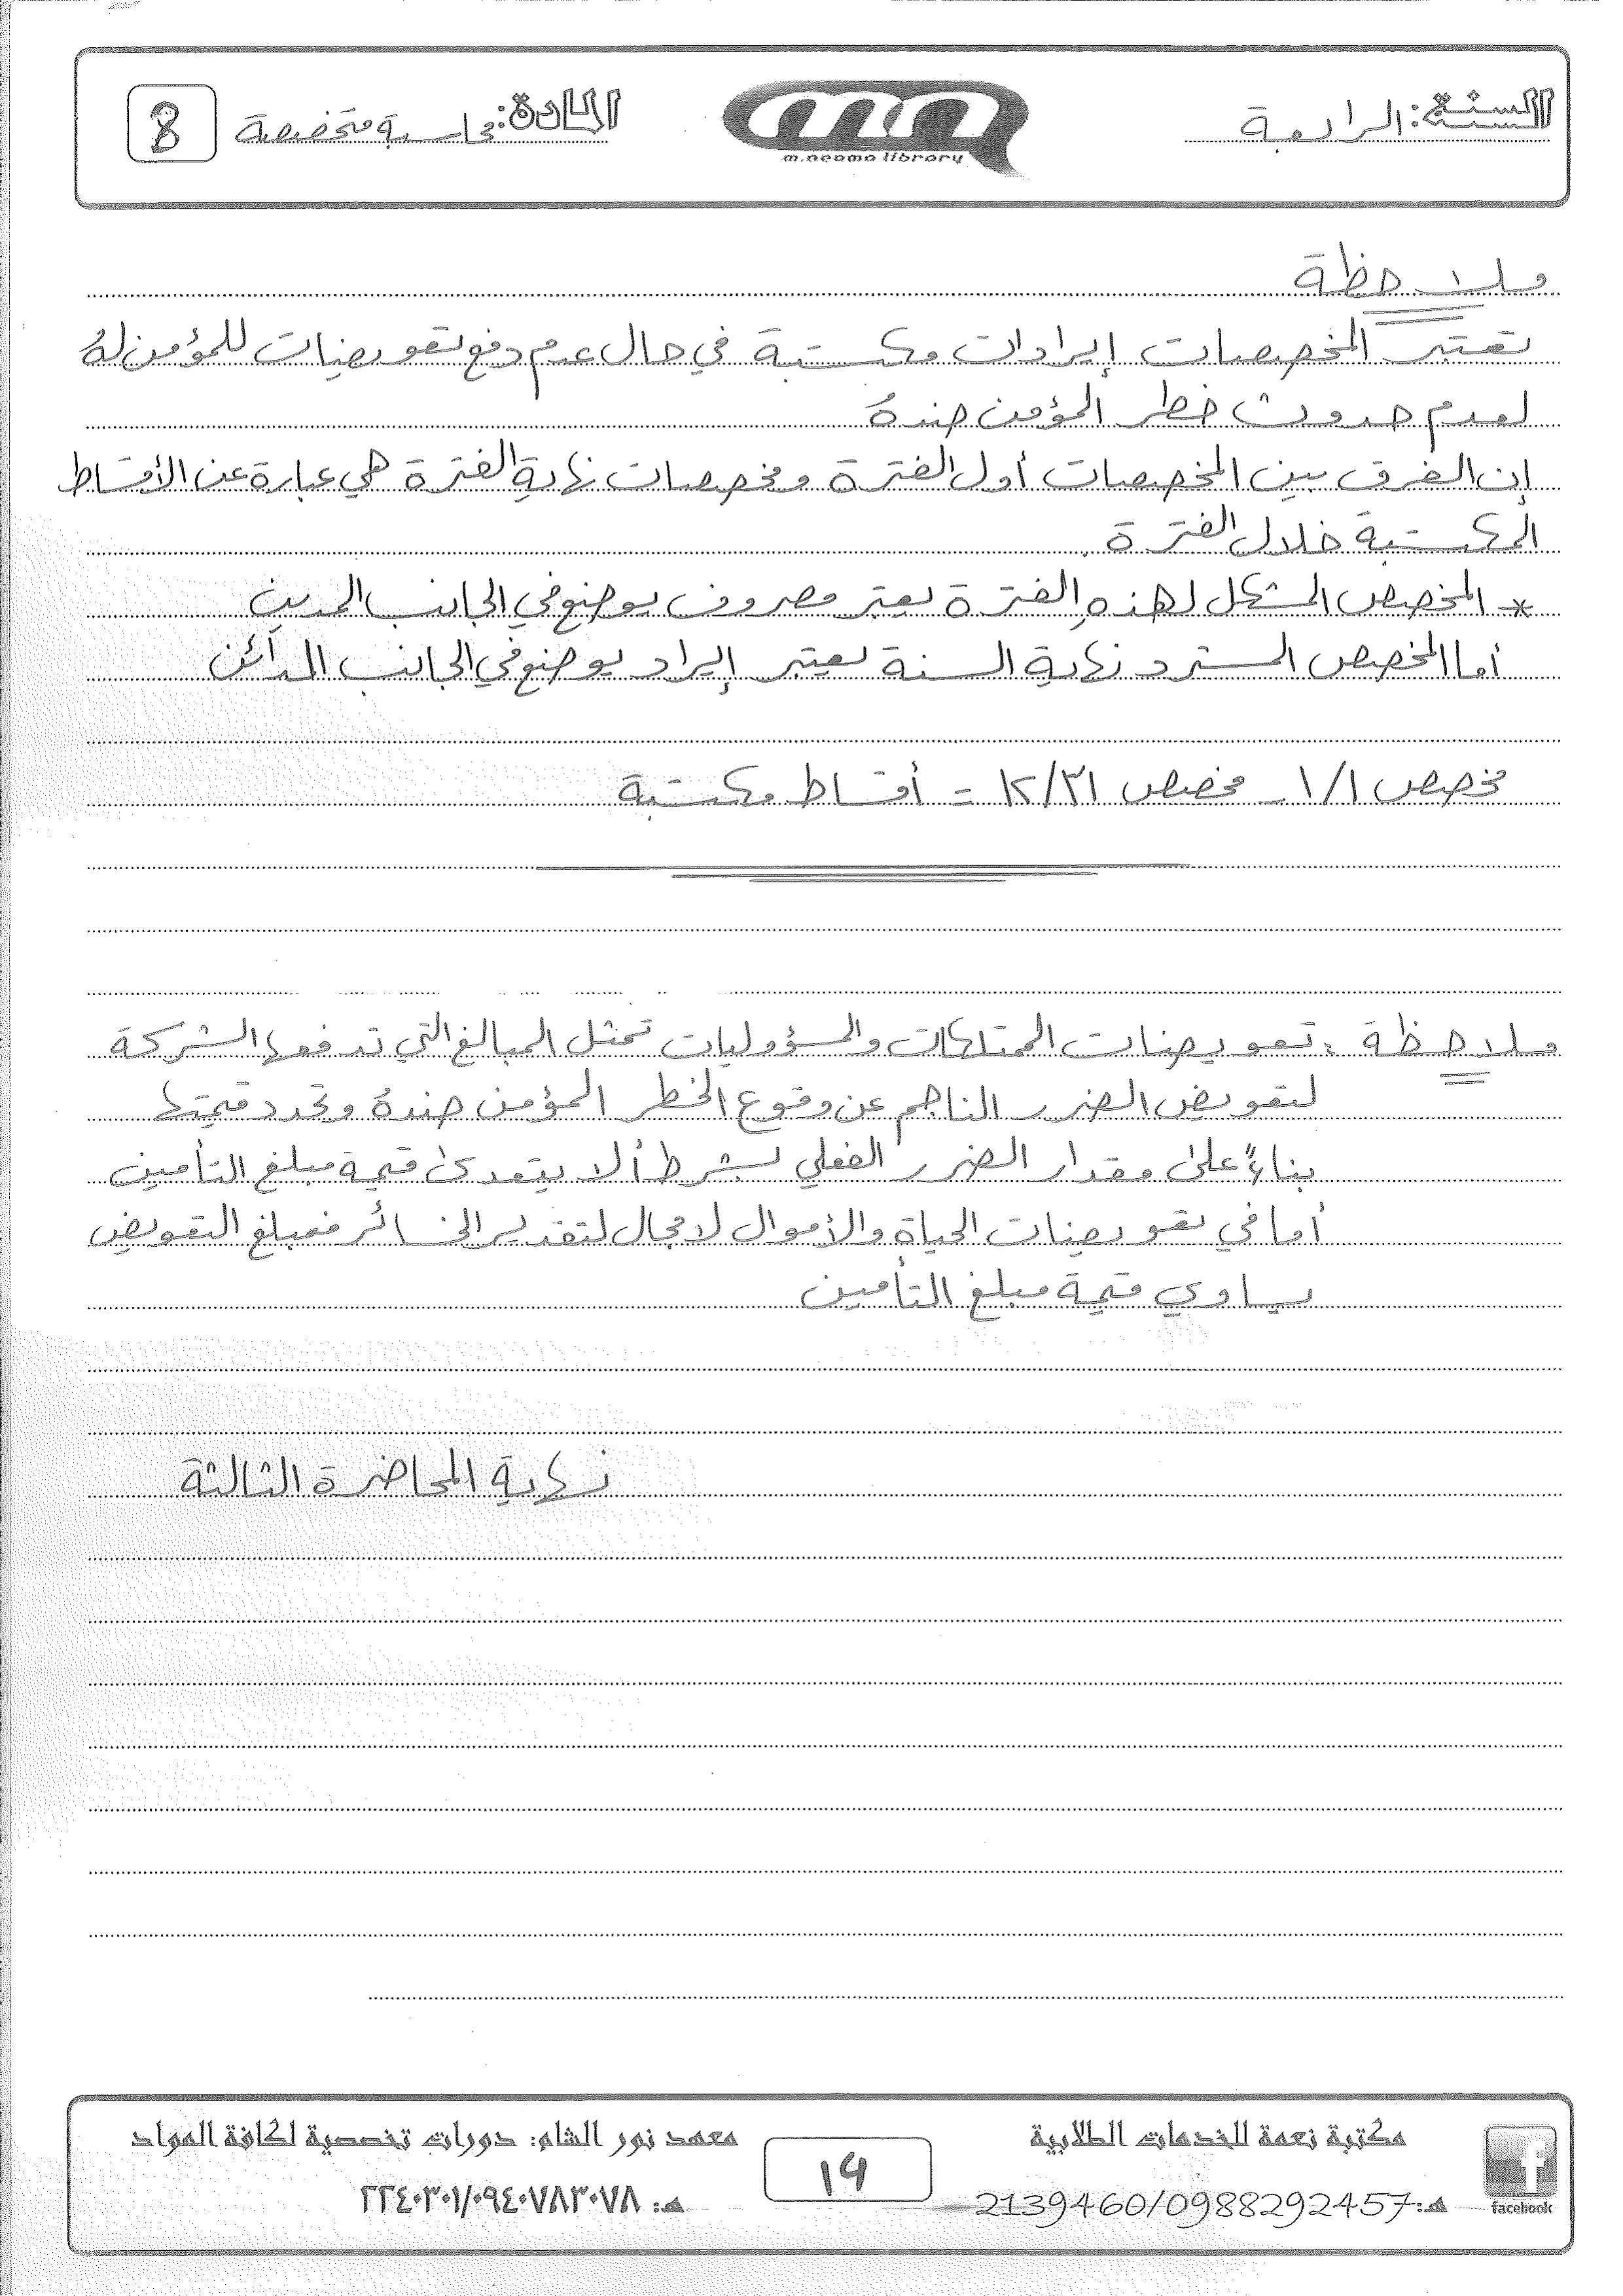 السنة: الرابعة
m.neama library
المادة: محاسبة متخصصة
8
ملاحظة
تعتبر المخصصات إيرادات مكتسبة في حال عدم دفع تعويضات للمؤمن لهُ
لعدم حدوث خطر المؤمن ضدهُ
إن الفرق بين المخصصات أول الفترة ومخصصات نهاية الفترة هي عبارة عن الأقساط
المكتسبة خلال الفترة.
* المخصص المشكل لهذهِ الفترة يعتبر مصروف يوضع في الجانب المدين
أما المخصص المسترد نهاية السنة يعتبر إيراد يوضع في الجانب الدائن
مخصص ١/١ - مخصص ١٢/٣١ = أقساط مكتسبة
ملاحظة: تعويضات الممتلكات والمسؤوليات تمثل المبالغ التي تدفعها الشركة
لتعويض الضرر الناجم عن وقوع الخطر المؤمن ضدهُ وتحدد قيمتها
بناءً على مقدار الضرر الفعلي بشرط ألا يتعدى قيمة مبلغ التأمين
أما في تعويضات الحياة والأموال لا مجال لتقدير الخسائر فمبلغ التعويض
يساوي قيمة مبلغ التأمين
نهاية المحاضرة الثالثة
مكتبة نعمة للخدمات الطلابية
هـ: 2139460/0988292457
facebook
١٩
معهد نور الشام: دورات تخصصية لكافة المواد
هـ: ٢٢٤٠٣٠١/٠٩٤٠٧٨٣٠٧٨